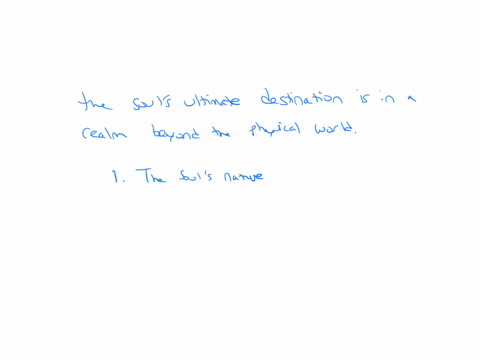 the soul's ultimate destination is in a
realm beyond the physical world.
1. The soul's nature